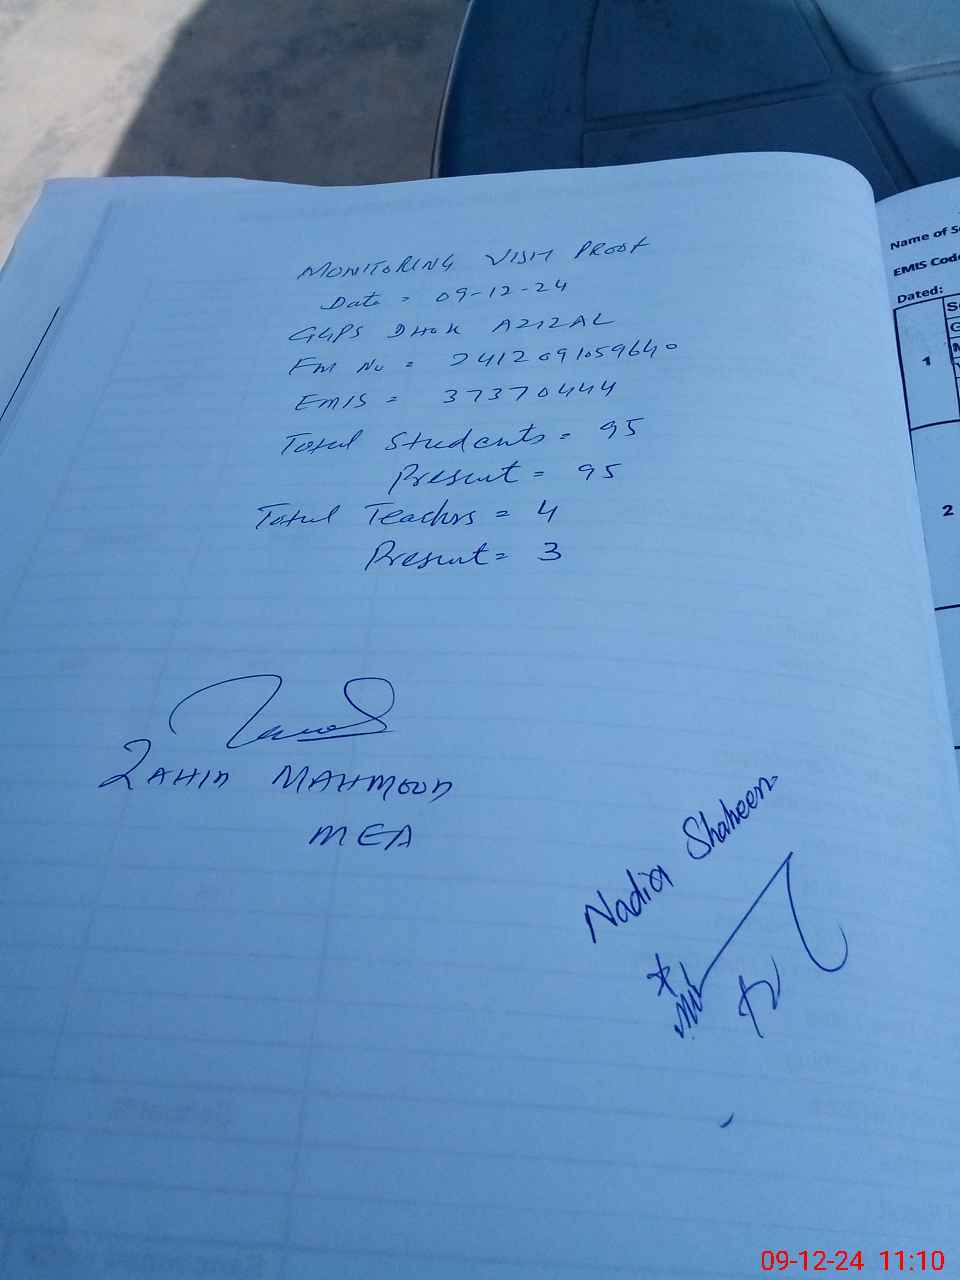 MONITORING VISIT PROOF
Date = 09-12-24
GGPS DHOK AZIZAL
FM No = 241209105964০
EMIS = 37370444
Total Students = 95
Present = 95
Total Teachers = 4
Present = 3
ZAHID MAHMOOD
MEA
Nadia Shaheen
Name of S
EMIS Cod
Dated:
1
2
09-12-24 11:10